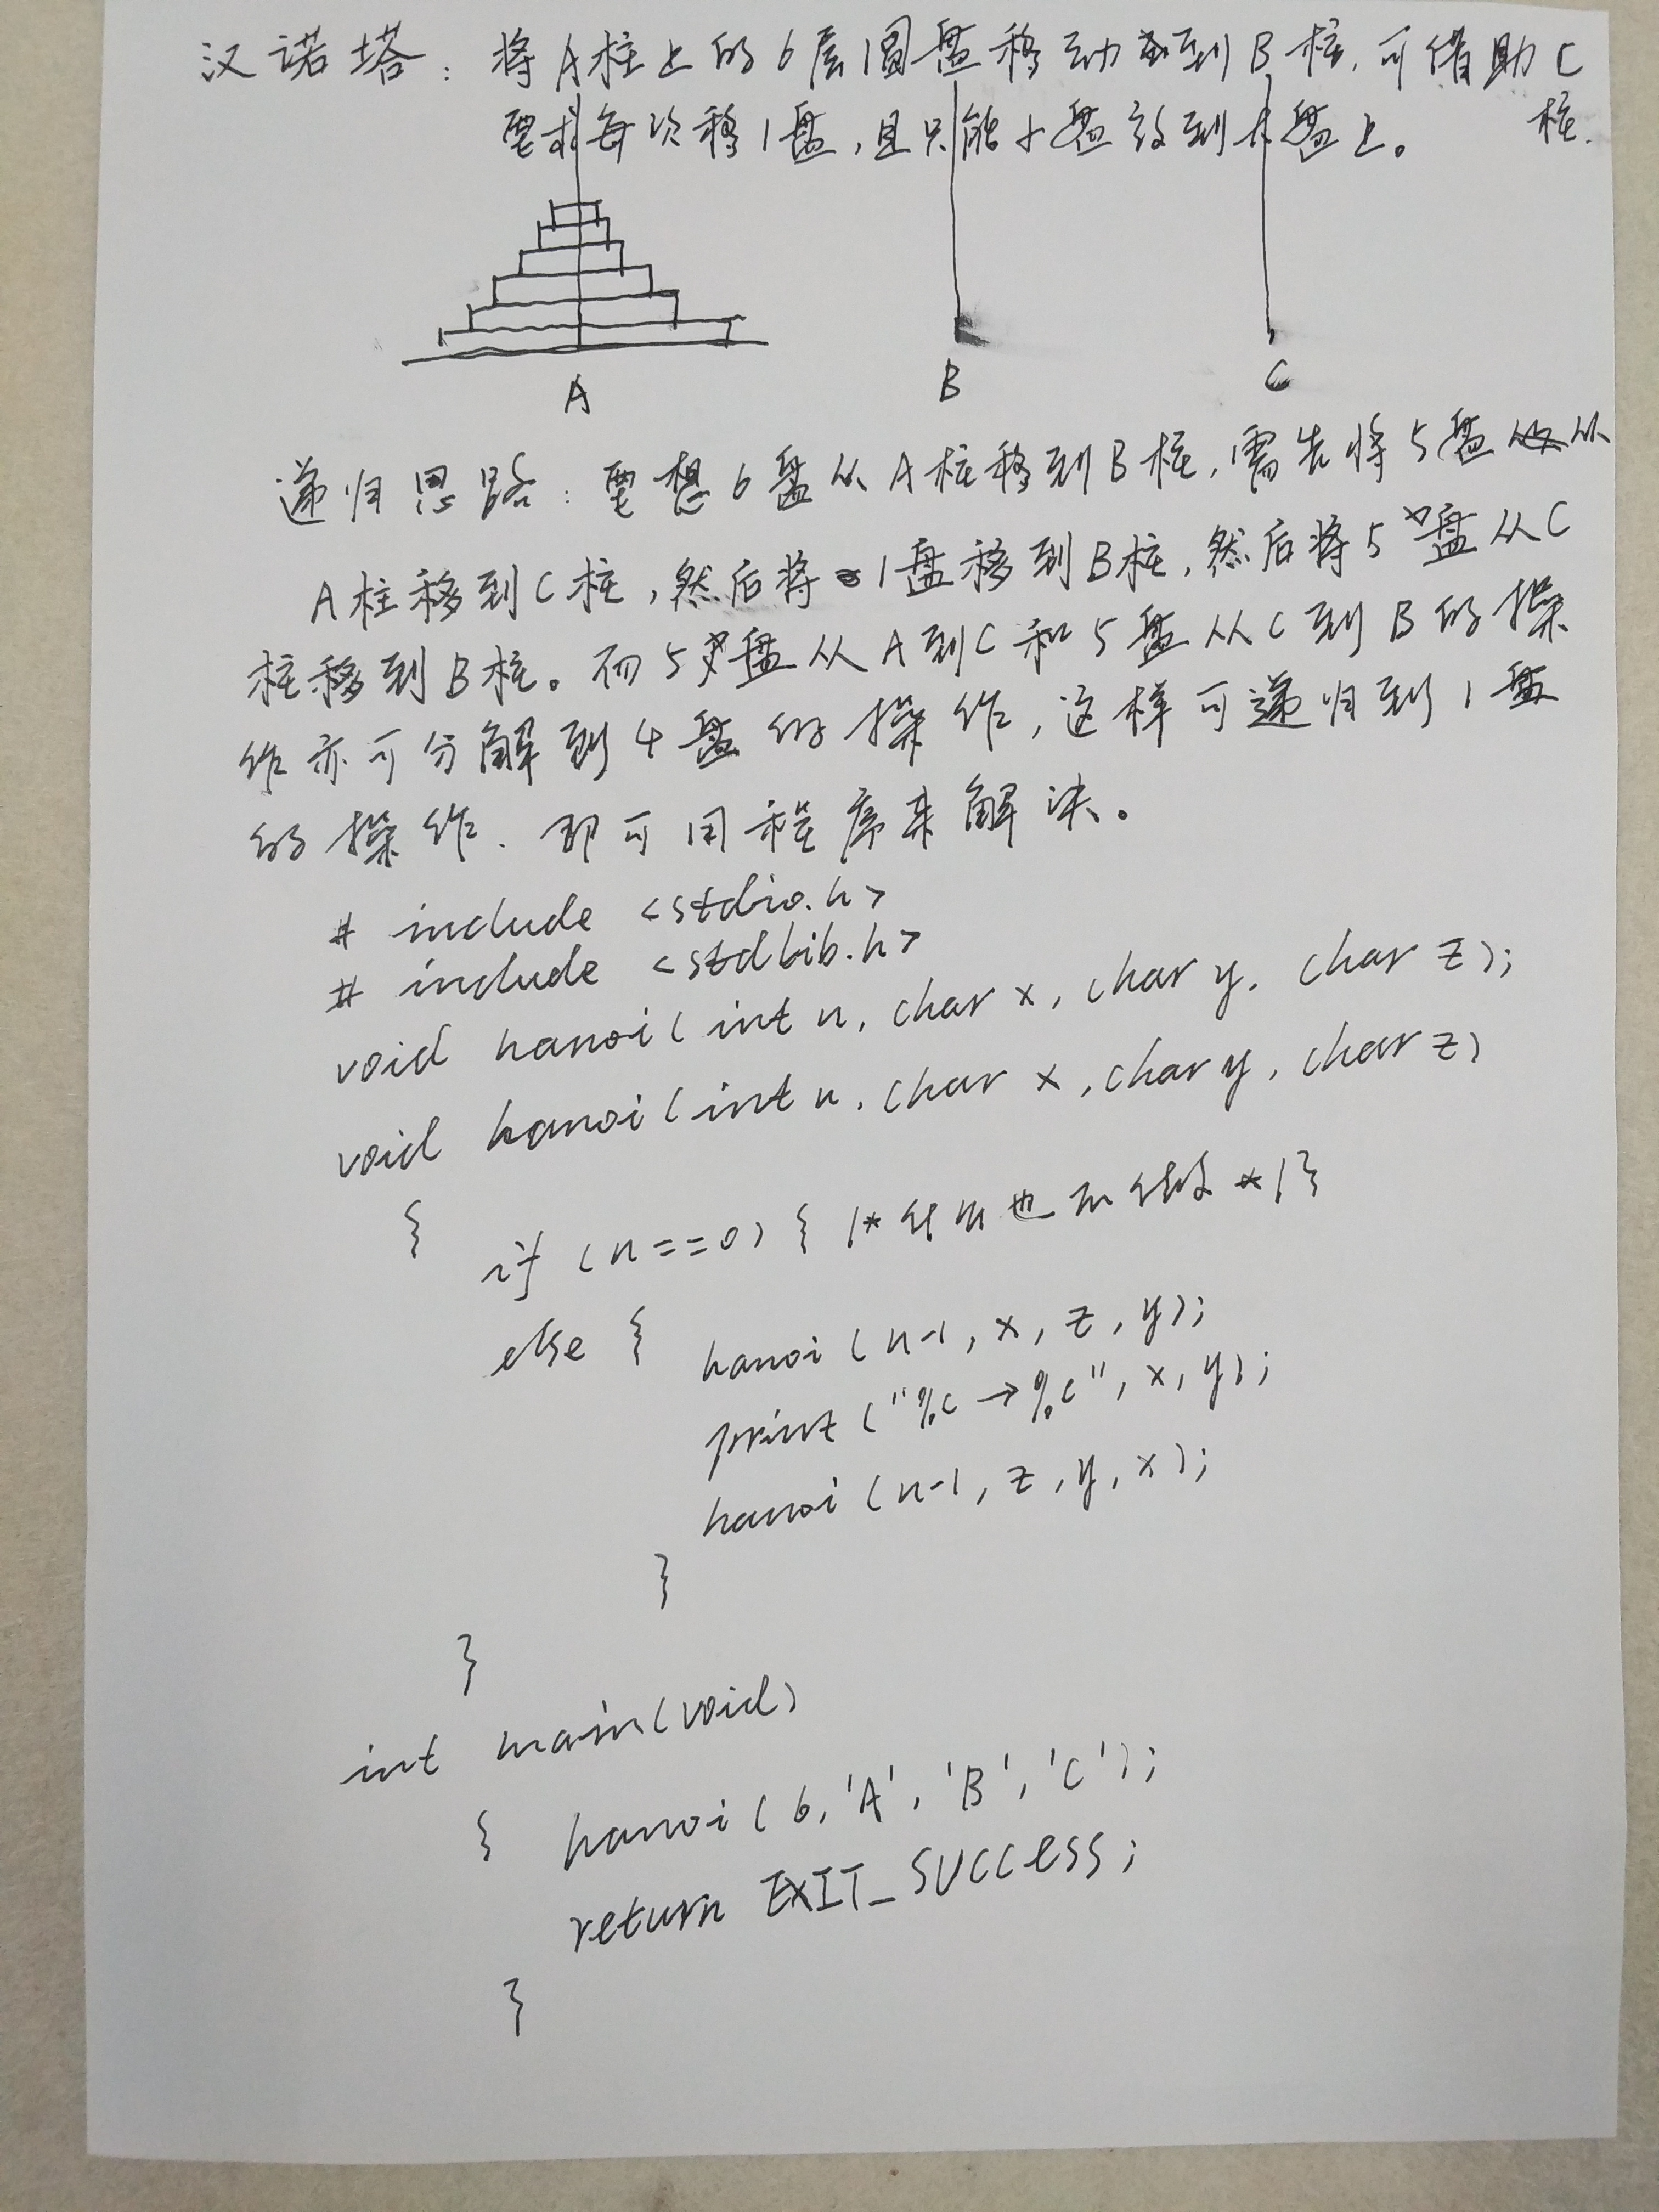 汉诺塔：将A柱上的6层圆盘移动到B柱，可借助C
柱.
要求每次移1盘，且只能小盘放到大盘上。
A B C
递归思路：要想6盘从A柱移到B柱，需先将5盘从
A柱移到C柱，然后将1盘移到B柱，然后将5盘从C
柱移到B柱。而5盘从A到C和5盘从C到B的操
作亦可分解到4盘的操作，这样可递归到1盘
的操作.即可用程序来解决。
# include <stdio.h>
# include <stdlib.h>
void hanoi(int n, char x, char y, char z);
void hanoi(int n, char x, char y, char z)
{
if (n==0) { /*什么也不做*/}
else { hanoi (n-1, x, z, y);
print ("%c→%c", x, y);
hanoi (n-1, z, y, x);
}
}
int main(void)
{ hanoi ( 6, 'A', 'B', 'C');
return EXIT_SUCCESS;
}